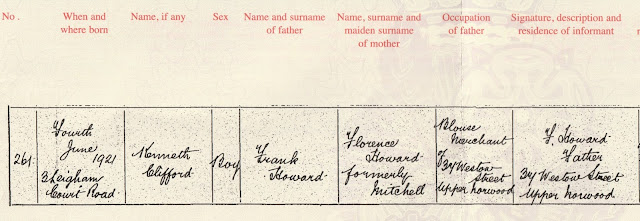 No.
When and
where born
Name, if any
Sex
Name and surname
of father
Name, surname and
maiden surname
of mother
Occupation
of father
Signature, description and
residence of informant
261.
Fourth
June
1921
3 Leigham
Court Road
Kenneth
Clifford
Boy
Frank
Howard
Florence
Howard
formerly
Mitchell
Blouse
Merchant
of 34 Westow
Street
Upper Norwood
F. Howard
Father
34 Westow Street
Upper Norwood